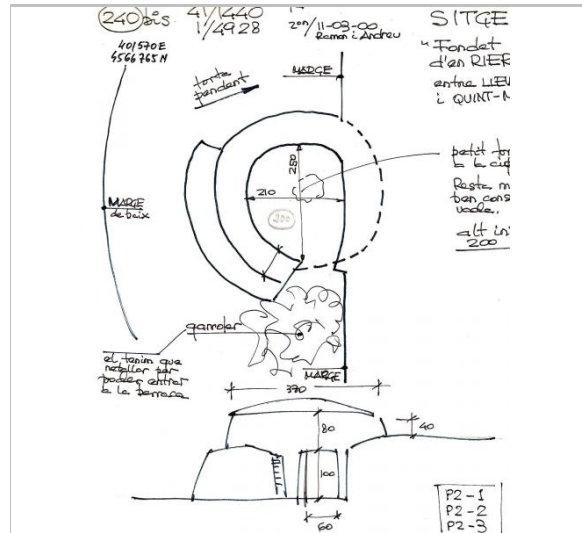 240 bis
41/1440
1/4928
20n/11-03-00
Ramon i Andreu
SITGE
"Fondet
d'en RIER
entre LLEV
i QUINT-M
401570E
4566765N
forta
pendent
MARGE
MARGE
de baix
250
210
200
petit for
a la cúp
Resta m
ben cons
vada.
alt in
200
garrofer
el teniu que
retallar per
poder entrar
a la barraca
MARGE
390
80
40
100
60
P2-1
P2-2
P2-3